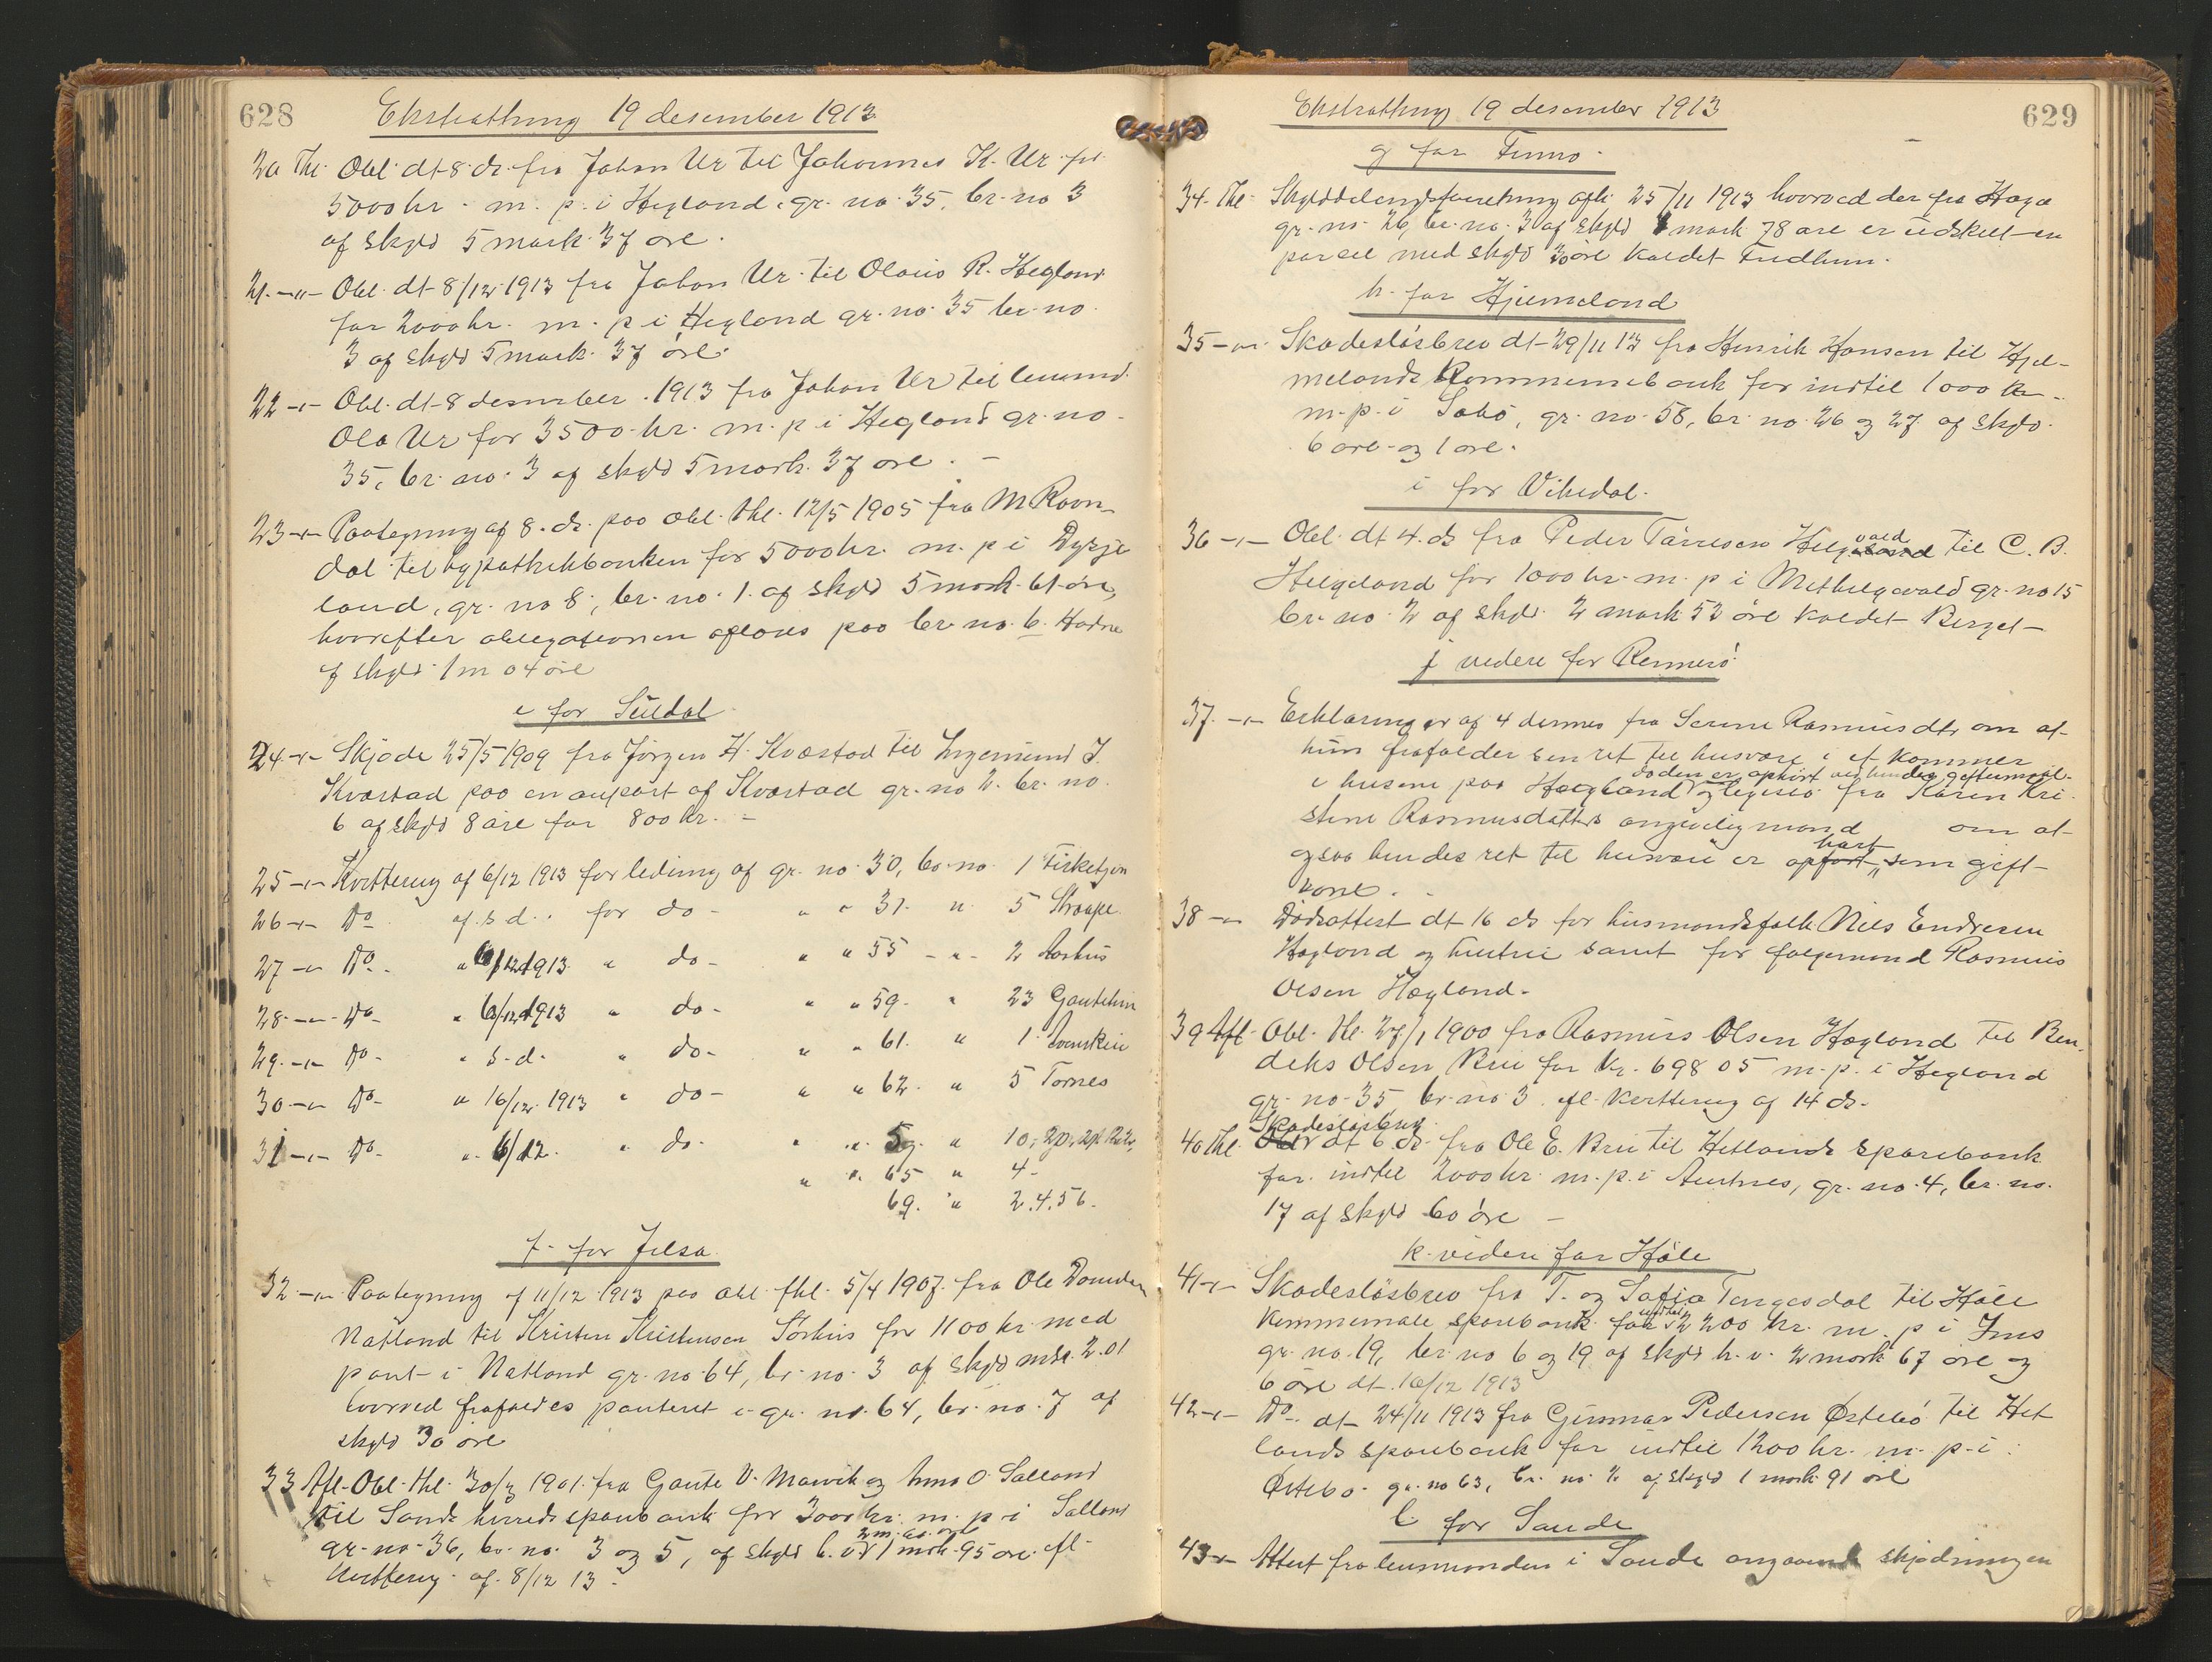 628
Ekstrathing 19 desember 1913
20 Thl. Obl. dt. 8 ds. fra Johan Ur til Johannes K. Ur for
5000 kr. m. p. i Hegland, gr. no. 35, br. no 3
af skyld 5 mark 37 øre.
21. -"- Obl. dt. 8/12 1913 fra Johan Ur til Olaus R. Hegland
for 2000 kr. m. p. i Hegland gr. no. 35 br. no.
3 af skyld 5 mark 37 øre.
22 -"- Obl. dt. 8 desember 1913 fra Johan Ur til lensmd.
Ola Ur for 3500 kr. m. p. i Hegland gr. no.
35, br. no. 3 af skyld 5 mark 37 øre. -
23 -"- Paategning af 8. ds. paa obl. thl. 12/5 1905 fra M Ravn-
dal til hypothekbanken for 5000 kr. m. p. i Dysje
land, gr. no 8, br. no. 1. af skyld 5 mark 61 øre,
hvorefter obligationen afløses paa br. no. 6. Hadne
af skyld 1 m 04 øre
e for Suldal
24. -"- Skjøde 25/5 1909 fra Jørgen H. Kvæstad til Ingemund J.
Kvæstad paa en anpart af Kvæstad gr. no 2. br. no.
6 af skyld 8 øre for 800 kr. -
25 -"- Kvittering af 6/12 1913 for ledning af gr. no. 30, br. no. 1 Fisketjøn
26 -"- Do af s. d. for do - " " 37. " 5 Straape
27 -"- Do - " 6/12 1913 " do - " " 55 - " - 2 Aarhus
28 -"- Do - " 6/12 1913 " do - " " 59. " 23 Gautehu
29. -"- Do - " s. d. " do - " " 61. " 1
30 -"- Do - " 16/12 1913 " do - " " 62. " 5 Tornes
31 -"- Do - " 6/12. " do - " " 59. " 10, 20,
" " 65 " 4 -
69. " 2. 4. 56.
f. for Jelsa
32. -"- Paategning af 11/12 1913 paa obl. thl. 5/4 1907 fra Ole
Natland til Kristen Kristensen Sørhus for 1100 kr. med
pant i Natland gr. no. 64, br. no. 3 af skyld mrk. 2.01
hvorved frafaldes panteret i gr. no. 64, br. no. 7 af
skyld 30 øre
33 Afl. Obl. thl. 30/3 1901 fra Gaute V. Marvik og O. Salland
til Sands herreds sparebank for 3000 kr. m. p. i Salland
gr. no. 36, br. no. 3 og 5, af skyld h. v. 1 mrk. 95 øre. efl.
kvittering af 8/12 13.
629
Ekstrathing 19 desember 1913
g for Finnø
34. Thl. Skylddelingsforretning afh. 25/11 1913 hvorved der fra Haga
gr. no. 26, br. no. 3 af skyld mark 78 øre er udskilt en
parsel med skyld 30 øre kaldet Fredheim.
h. for Hjelmeland
35 -"- Skadesløsbrev dt. 29/11 13 fra Henrik Hansen til Hjel-
melands kommunebank for indtil 1000 kr.
m. p. i Sabø, gr. no. 58, br. no. 26 og 27 af skyld
6 øre og 1 øre.
i for Vikedal.
36 -"- Obl. dt. 4. ds fra Peder Tørresen Helgevold til C. B.
Helgeland for 1000 kr. m. p. i Methelgevold gr. no 15
br. no. 2 af skyld 2 mark 53 øre kaldet Berget -
j videre for Rennesø
37. -"- Erklæring er af 4 dennes fra Serine Rasmusdtr om at
hun frafalder sin ret til husvære i et kammer
da den er ophørt ved hendes giftermaal
i husene paa Høgland og ligesaa fra Karen Kri-
stine Rasmusdatters angivelig mand om at
ogsaa hendes ret til husvære er som gift-
kone.
38 -"- Dødsattest dt 16 ds for husmandsfolk Nils Endresen
Høgland og hustru samt for følgemand Rasmus
Olsen Høgland.
39 Afl. Obl. thl. 27/1 1900 fra Rasmus Olsen Høgland til Ben-
diks Olsen Bru for kr. 698 05 m. p. i Hegland
gr. no. 35 br. no 3. efl. kvittering af 14 ds.
40 Thl. Skadesløsbrev dt 6 ds. fra Ole E. Bru til Hetlands sparebank
for indtil 2000 kr. m. p. i Austnes, gr. no. 4, br. no.
17 af skyld 60 øre -
k. videre for Høle
41 -"- Skadesløsbrev fra T. og Sofia Tengesdal til Høle
kommunale sparebank for indtil 2200 kr. m. p. i Ims
gr. no. 19, br. no 6 og 19 af skyld h. v. 2 mark 67 øre og
6 øre dt. 16/12 1913
42 -"- Do. dt. 24/11 1913 fra Gunnar Pedersen Østebø til Het
lands sparebank for indtil 1200 kr. m. p. i
Østebø. gr. no 63, br. no. af skyld 1 mark 91 øre
l. for Saude
43 -"- Attest fra lensmanden i Saude angaaende skjødningen